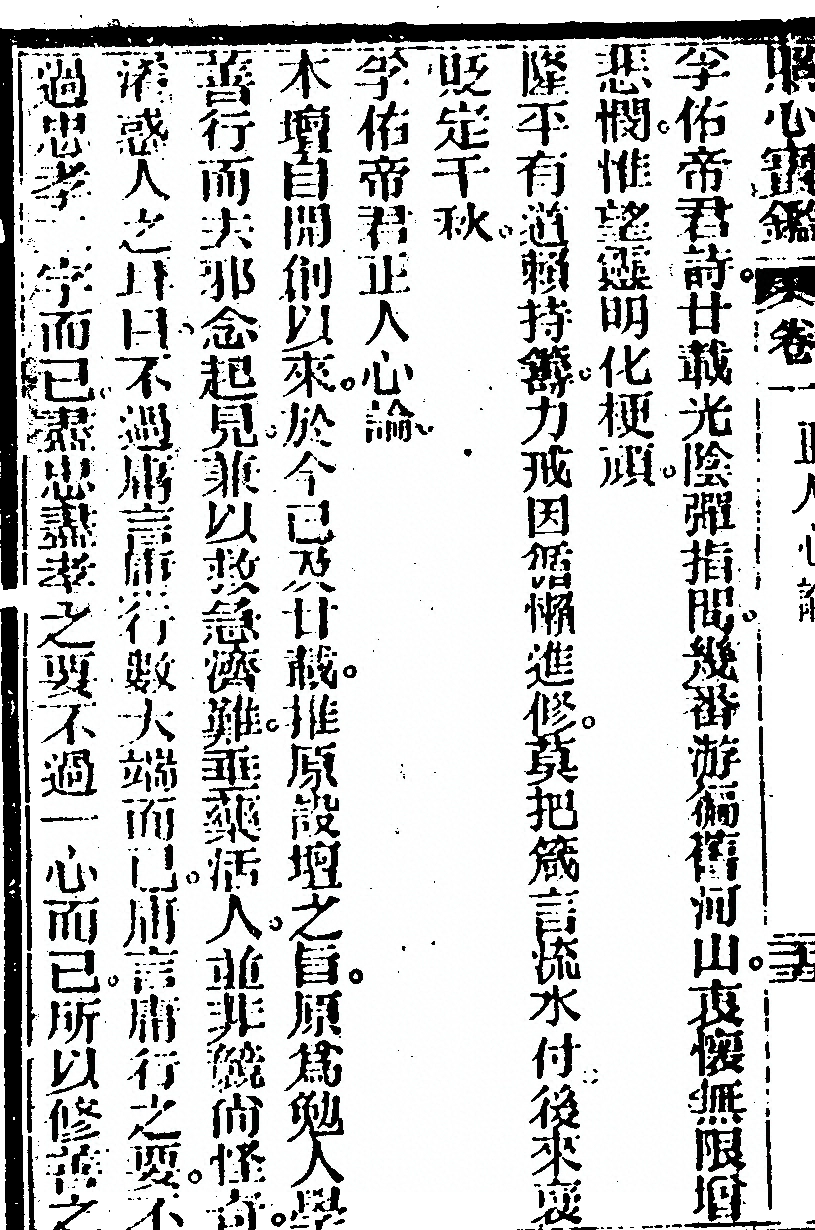 照心寶鑑 卷一 正人心論 二十五
孚佑帝君詩。廿載光陰彈指間。幾番游徧舊河山。衷懷無限增
悲憫。惟望靈明化梗頑。
隆平有道賴持籌。力戒因循懶進修。莫把箴言流水付。後來褒
貶定千秋。
孚佑帝君正人心論。
木壇自開創以來。於今已及廿載。推原設壇之旨。原爲勉人學
善行而去邪念起見。兼以救急濟難。垂藥活人。並非競尚怪奇。
淆惑人之耳目。不過庸言庸行數大端而已。庸言庸行之要。不
過忠孝二字而已。盡忠盡孝之要。不過一心而已。所以修善之